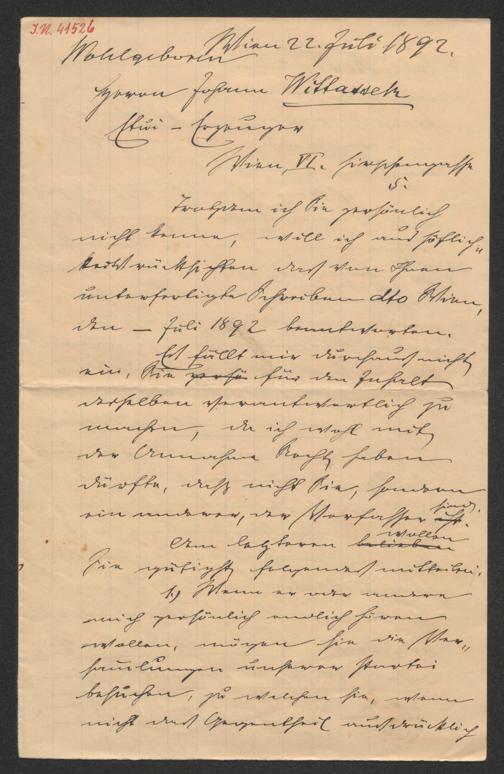 J.N. 41526
Wien 22. Juli 1892.
Wohlgeboren
Herrn Johann Wittassek
Etui – Erzeuger
Wien, VI. Hirschengasse
5.
Trotzdem ich Sie persönlich
nicht kenne, will ich aus höflich-
keitsrücksichten das von Ihnen
unterfertigte Schreiben dto Wien,
den – Juli 1892 beantworten.
Es fällt mir durchaus nicht
ein, Sie für den Inhalt
desselben verantwortlich zu
machen, da ich wohl mit
der Annahme Recht haben
dürfte, daß nicht Sie, sondern
ein anderer, der Verfasser ist.
Dem letzteren belieben wollen
Sie gütigst folgendes mitteilen.
1.) Wenn er oder andere
mich persönlich endlich hören
wollen, mögen sie die Ver-
sammlungen unserer Partei
besuchen, zu welchen sie, wenn
nicht das Gegentheil ausdrücklich